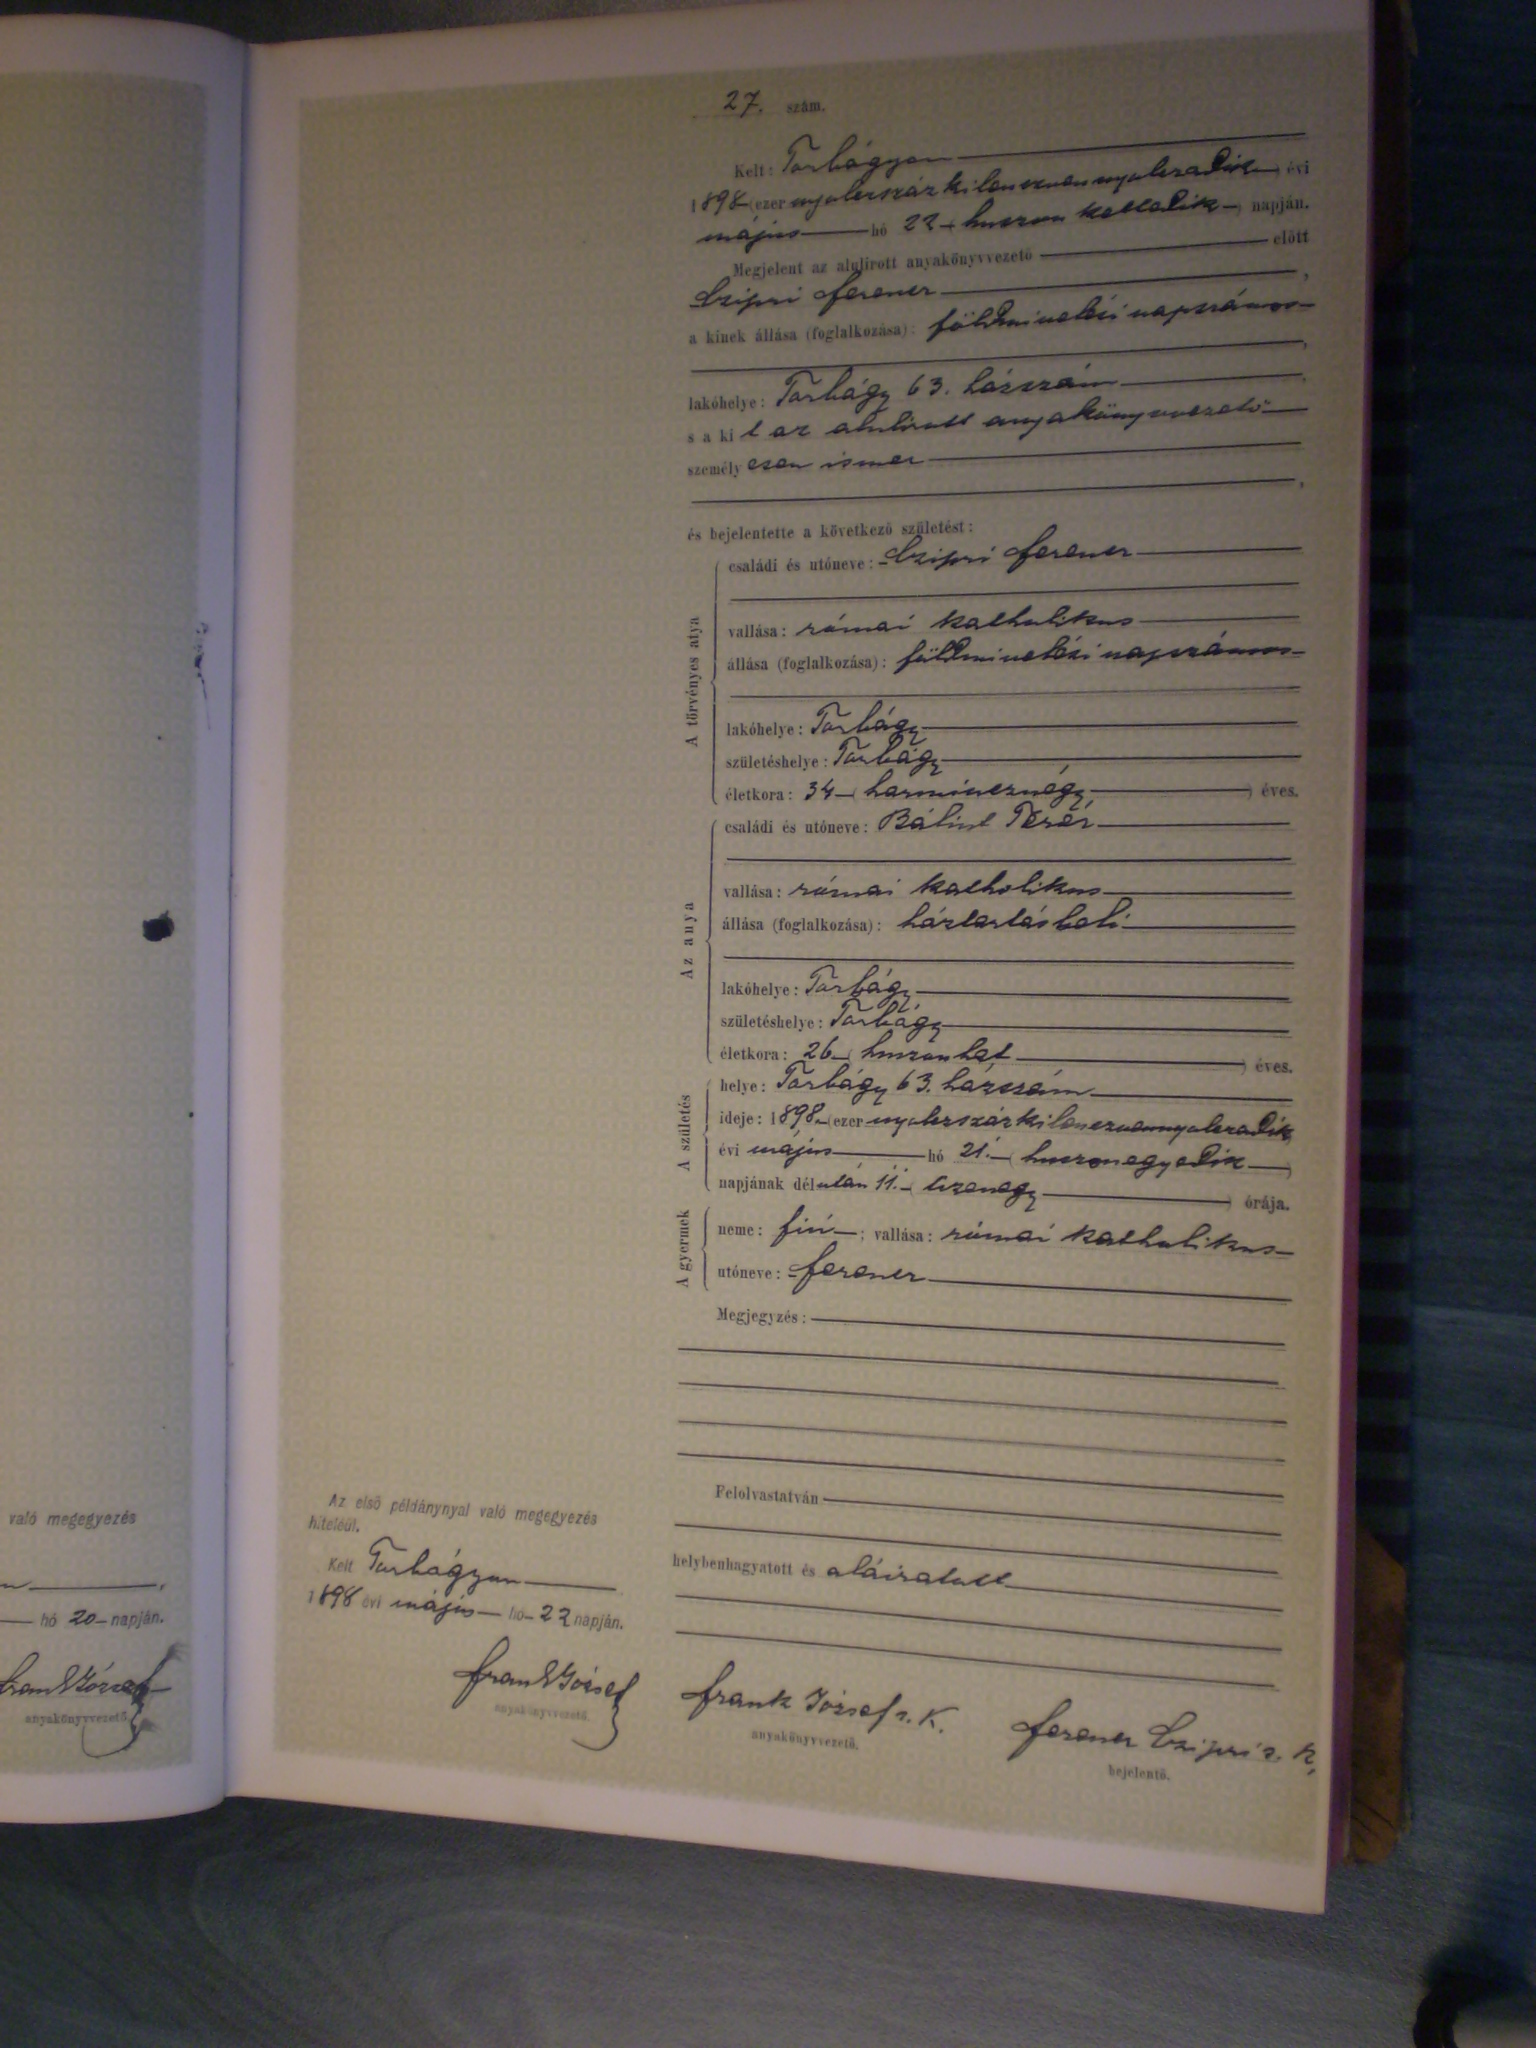 27. szám.
Kelt: Torbágyon
1898 (ezer nyolcszázkilencvennyolcadik) évi
május hó 22 (huszonkettedik) napján.
Megjelent az alulírott anyakönyvvezető előtt
Czipri Ferencz,
a kinek állása (foglalkozása): földmivelési napszámos
lakóhelye: Torbágy 63. házszám
s a kit az alulirott anyakönyvvezető
személyesen ismer
és bejelentette a következő születést:
A törvényes atya
családi és utóneve: Czipri Ferencz
vallása: római katholikus
állása (foglalkozása): földmivelési napszámos
lakóhelye: Torbágy
születéshelye: Torbágy
életkora: 34 (harmincznégy) éves.
Az anya
családi és utóneve: Bálint Teréz
vallása: római katholikus
állása (foglalkozása): háztartásbeli
lakóhelye: Torbágy
születéshelye: Torbágy
életkora: 26 (huszonhat) éves.
A születés
helye: Torbágy 63. házszám
ideje: 1898 (ezer nyolczszázkilenczvennyolczadik)
évi május hó 21. (huszonegyedik)
napjának délután 11. (tizenegy) órája.
A gyermek
neme: fiú; vallása: római katholikus
utóneve: Ferencz
Megjegyzés:
Felolvastatván
helybenhagyatott és aláiratott
Frank József s. k.
anyakönyvvezető.
Ferencz Czipri s. k.
bejelentő.
Az első példánynyal való megegyezés
hiteléül.
Kelt Torbágyon
1898 évi május hó 22 napján.
Frank József
anyakönyvvezető.
való megegyezés
hó 20 napján.
Frank József
anyakönyvvezető.